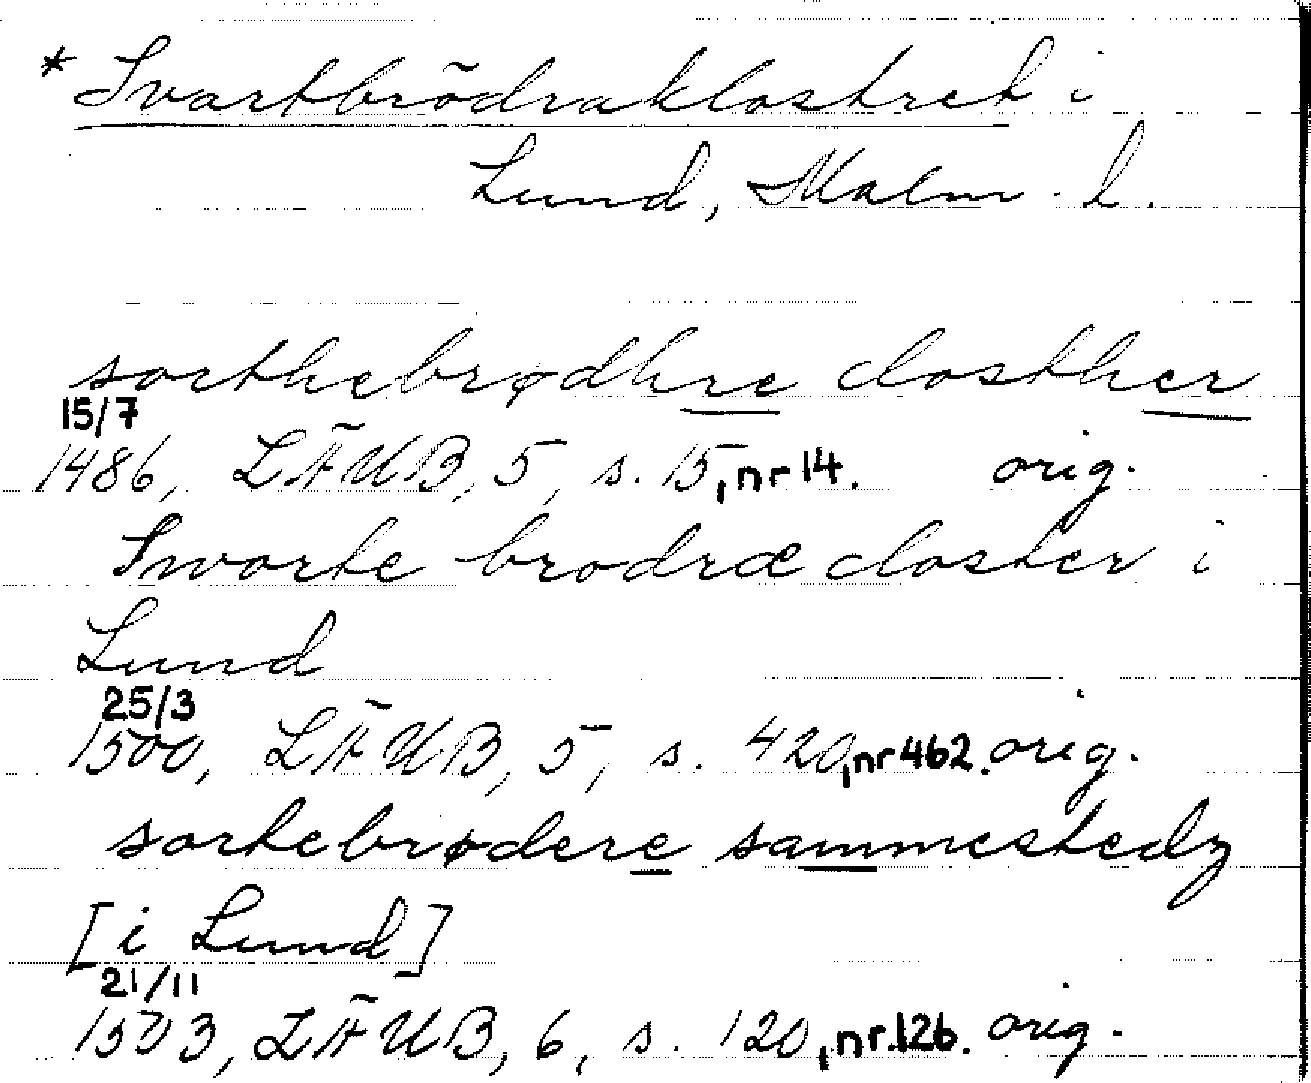 * Svartbrödraklostret i
Lund, Malm. l.
sorthebrødhre closther
15/7
1486, LÄUB, 5, s. 15, nr 14. orig.
Sworte brodræ closter i
Lund
25/3
1500, LÄUB, 5, s. 420, nr 462. orig.
sortebrødere sammestedz
[i Lund]
21/11
1503, LÄUB, 6, s. 120, nr. 126. orig.